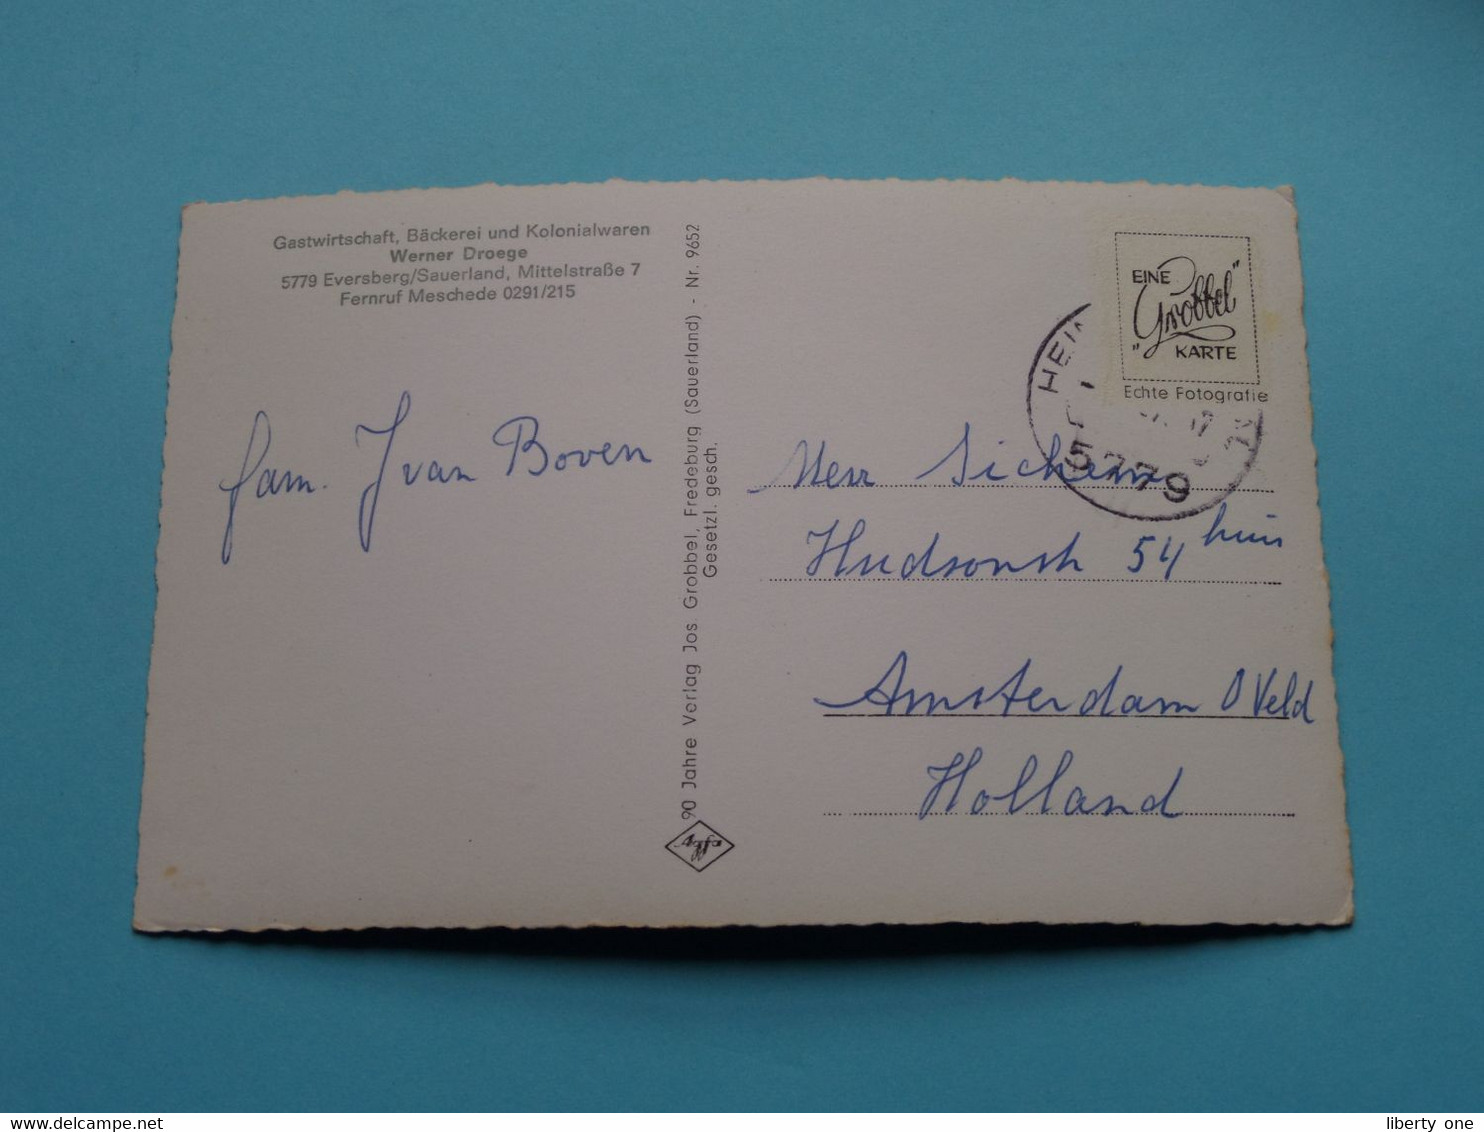 Gastwirtschaft, Bäckerei und Kolonialwaren
Werner Droege
5779 Eversberg/Sauerland, Mittelstraße 7
Fernruf Meschede 0291/215
fam. J van Boven
90 Jahre Verlag Jos Grobbel, Fredeburg (Sauerland) - Nr. 9652
Gesetzl. gesch.
EINE
"Grobbel"
KARTE
Echte Fotografie
HEIN
5779
Hudsonstr 54 huis
Amsterdam O Veld
Holland
liberty one